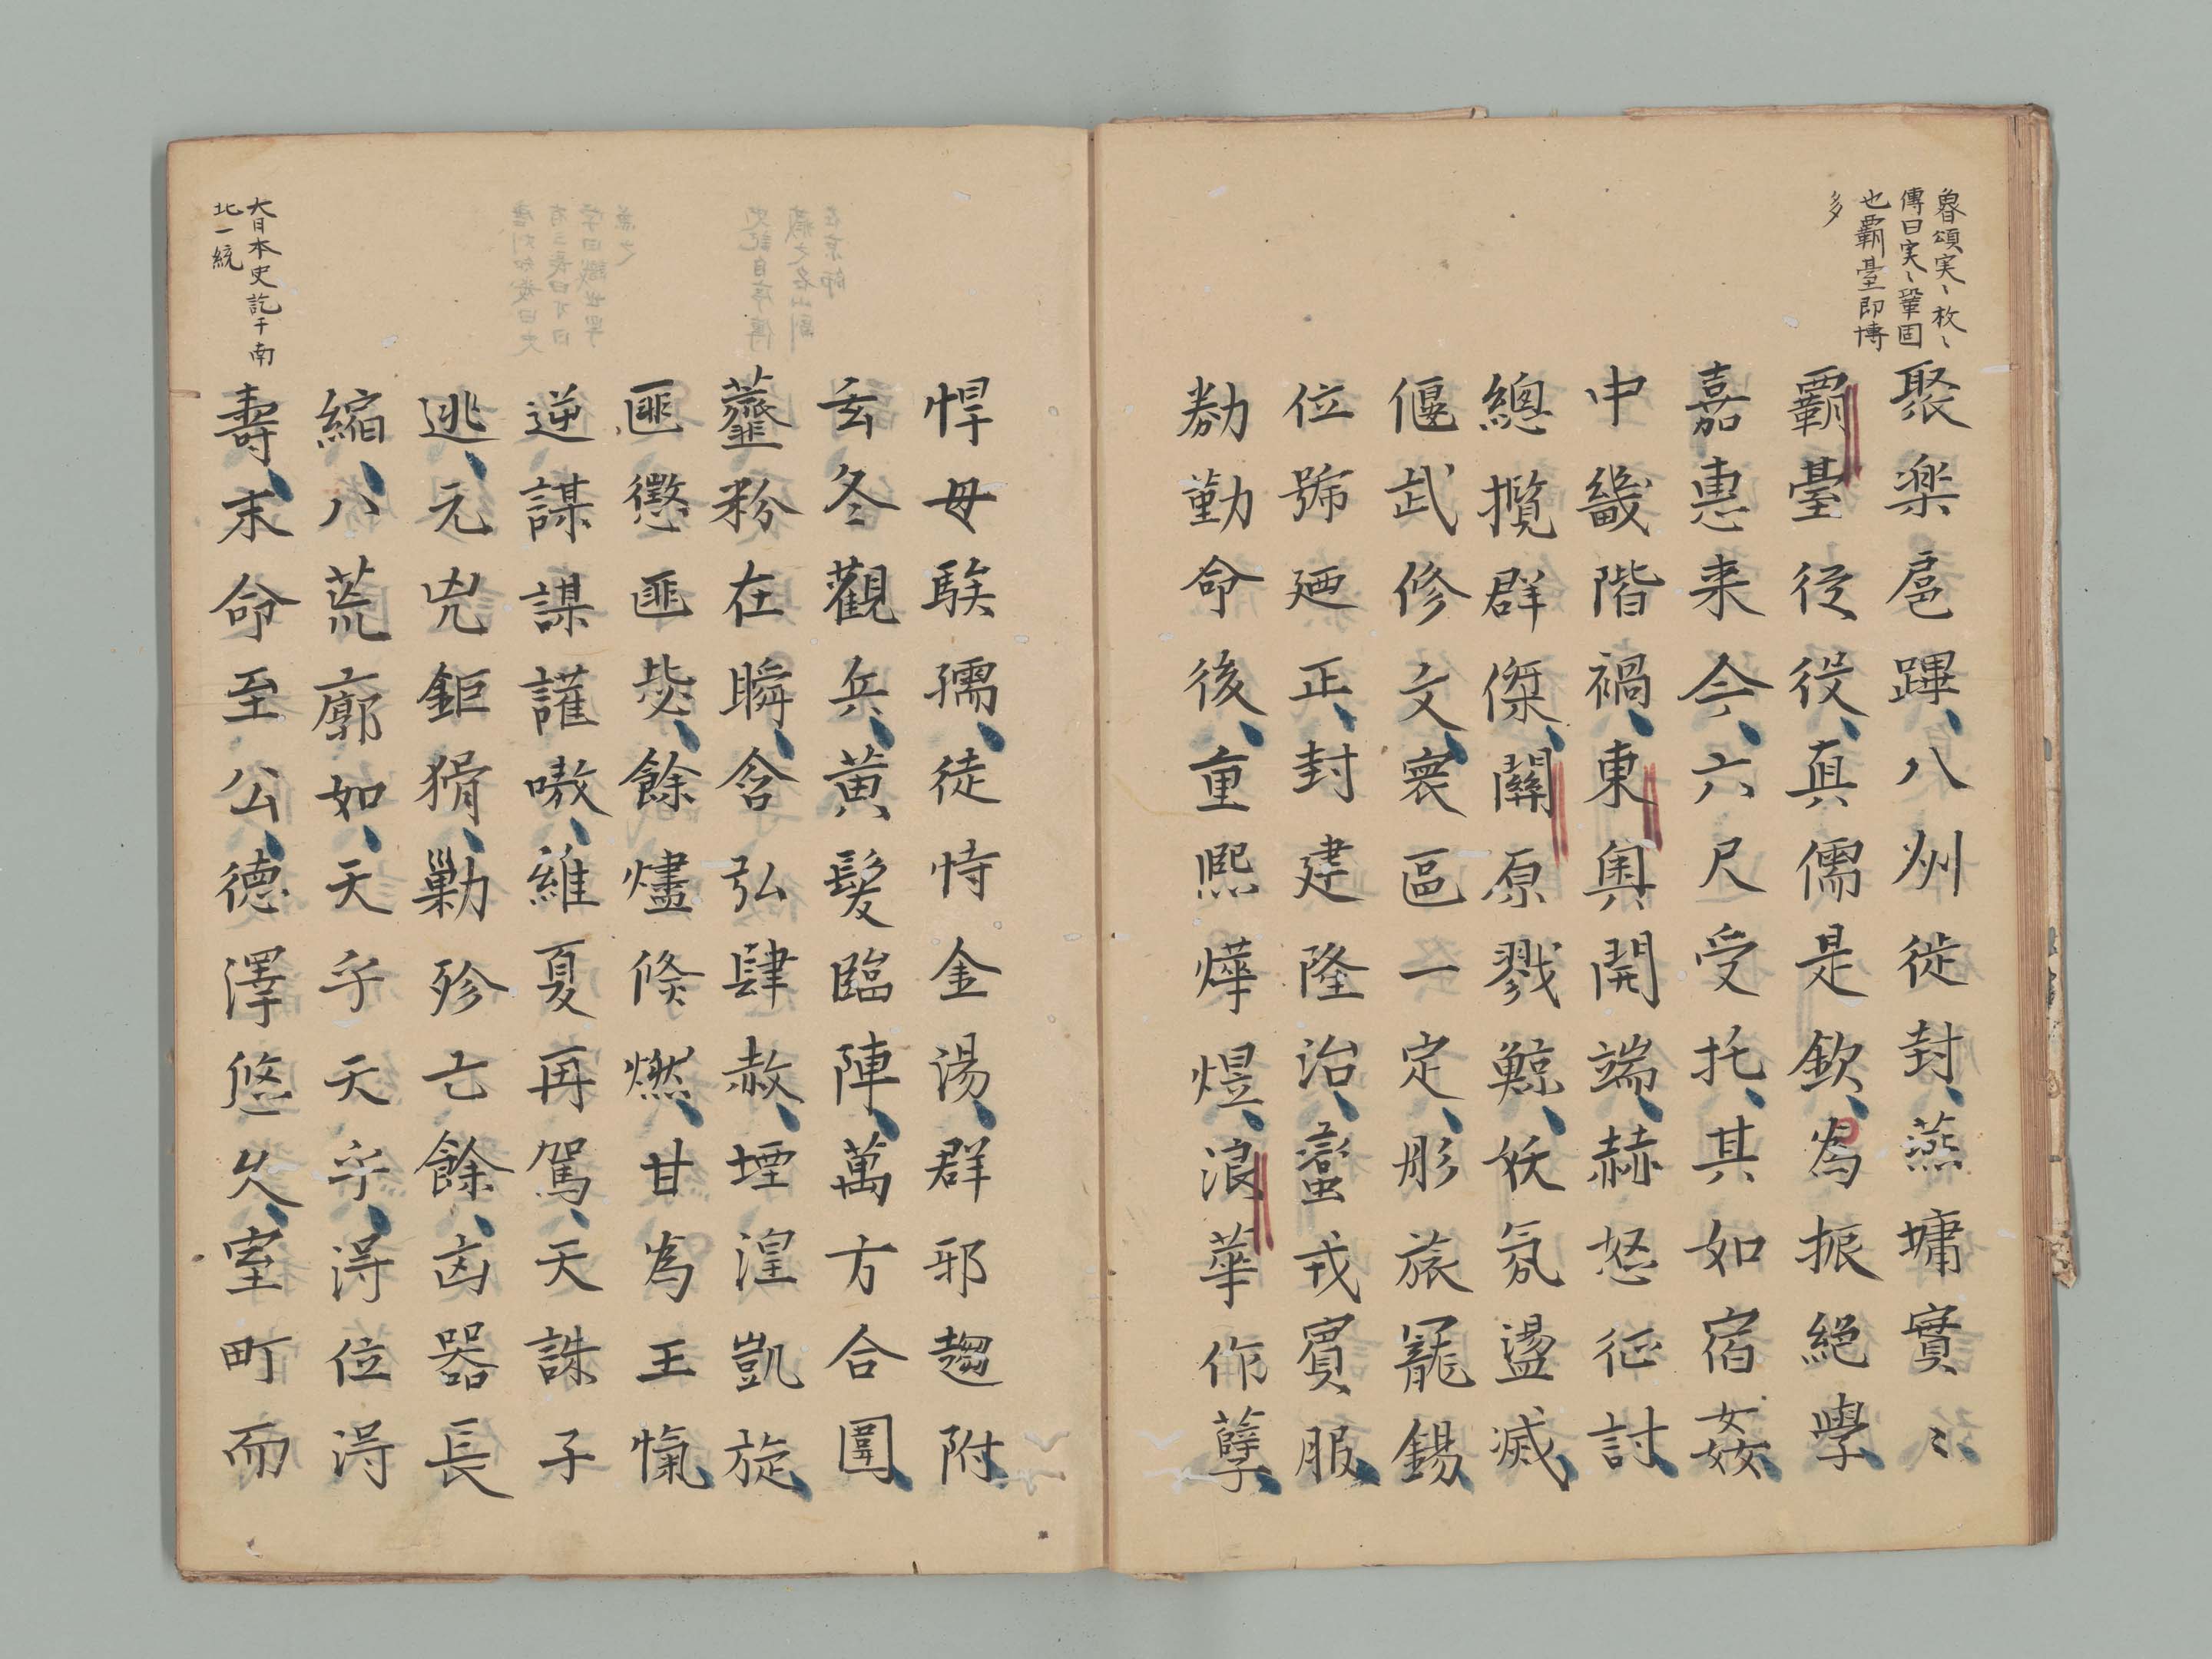 魯頌実〻枚〻
傳曰実〻鞏固
也覇臺即博
多
聚楽扈蹕、八州徙封、燕墉實〻、
覇臺従役、真儒是欽、為振絶學、
嘉恵来今、六尺受托、其如宿姦、
中畿階禍、東奥開端、赫怒征討、
總攬群傑、關原戮鯨、妖氛盪滅、
偃武修文、寰區一定、彤旅寵錫、
位號廼正、封建隆治、蠻戎賓服、
勌勤命後、重熈燁煜、浪華作孽、
悍母騃孺、徒恃金湯、群邪趨附、
玄冬觀兵、黄髪臨陣、萬方合圍、
虀粉在瞬、含弘肆赦、堙湟凱旋、
匪懲匪毖、餘燼倏燃、甘為王愾、
逆謀謀讙嗷、維夏再駕、天誅子
逃、元兇鉅猾、勦殄亡餘、凶器長
縮、八荒廓如、天乎天乎、得位得
壽、末命至公、德澤悠久、室町而
大日本史訖于南
北一統